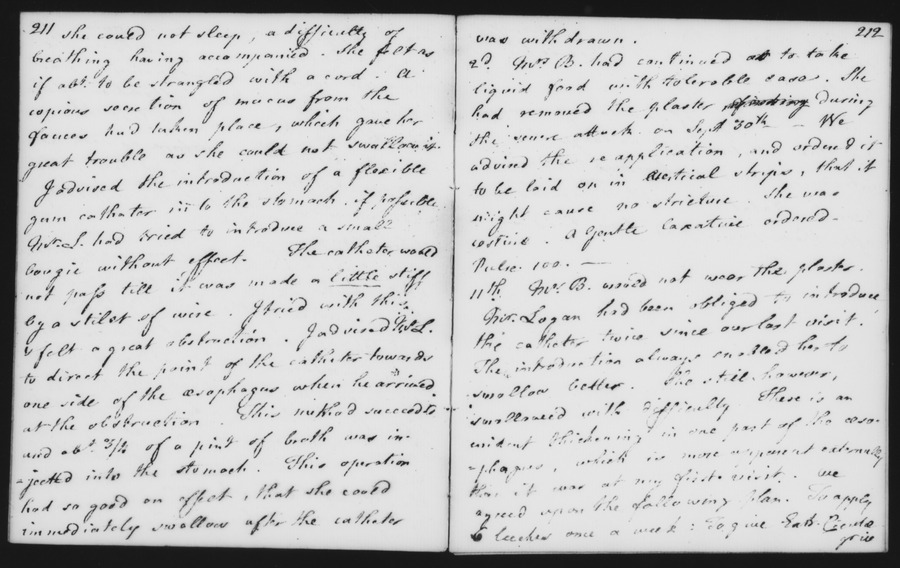 211
she could not sleep, a difficulty of
breathing having accompanied. She felt as
if abt. to be strangled with a cord. A
copious secretion of mucus from the
fauces had taken place, which gave her
great trouble as she could not swallow it.
I advised the introduction of a flexible
gum catheter into the stomach if possible.
Mr. L. had tried to introduce a small
bougie without effect. The catheter would
not pass till it was made a little stiff
by a stilet of wire. I tried with this
& felt a great obstruction. I advised Mr. L.
to direct the point of the catheter towards
one side of the œsophagus when he arrived
at the obstruction. This method succeeded
and abt. 3/4 of a pint of broth was in-
-jected into the stomach. This operation
had so good an effect, that she could
immediately swallow after the catheter
212
was withdrawn.
2d. Mrs. B. had continued to take
liquid food with tolerable ease. She
had removed the plaster during
the severe attack on Sept 30th - We
advised the reapplication, and ordered it
to be laid on in vertical strips, that it
might cause no stricture. She was
costive. A gentle laxative ordered.
Pulse. 100. —
11th. Mrs. B. would not wear the plaster.
Mr. Logan had been obliged to introduce
the catheter twice since our last visit.
The introduction always enabled her to
swallow better. She still however,
swallowed with difficulty. There is an
evident thickening in one part of the œso-
-phagus which is more apparent externally
than it was at my first visit. We
agreed upon the following plan. To apply
6 leeches once a week: To give Extr. Cicutæ
give